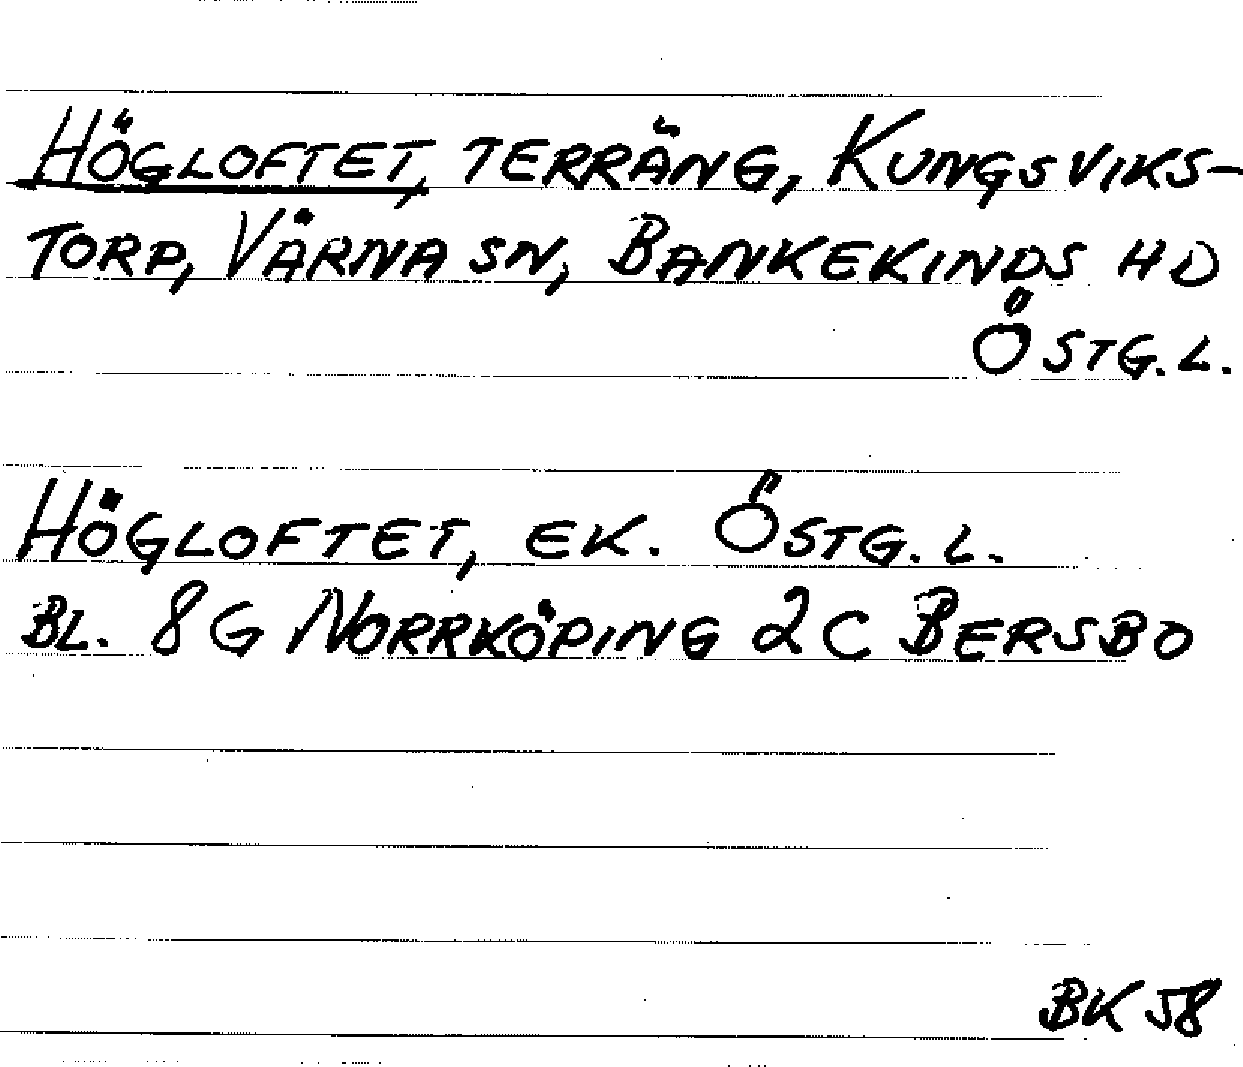 HÖGLOFTET, TERRÄNG, KUNGSVIKS-
TORP, VÄRNA SN, BANKEKINDS HD
ÖSTG.L.
HÖGLOFTET, EK. ÖSTG.L.
BL. 8G NORRKÖPING 2C BERSBO
BK 58